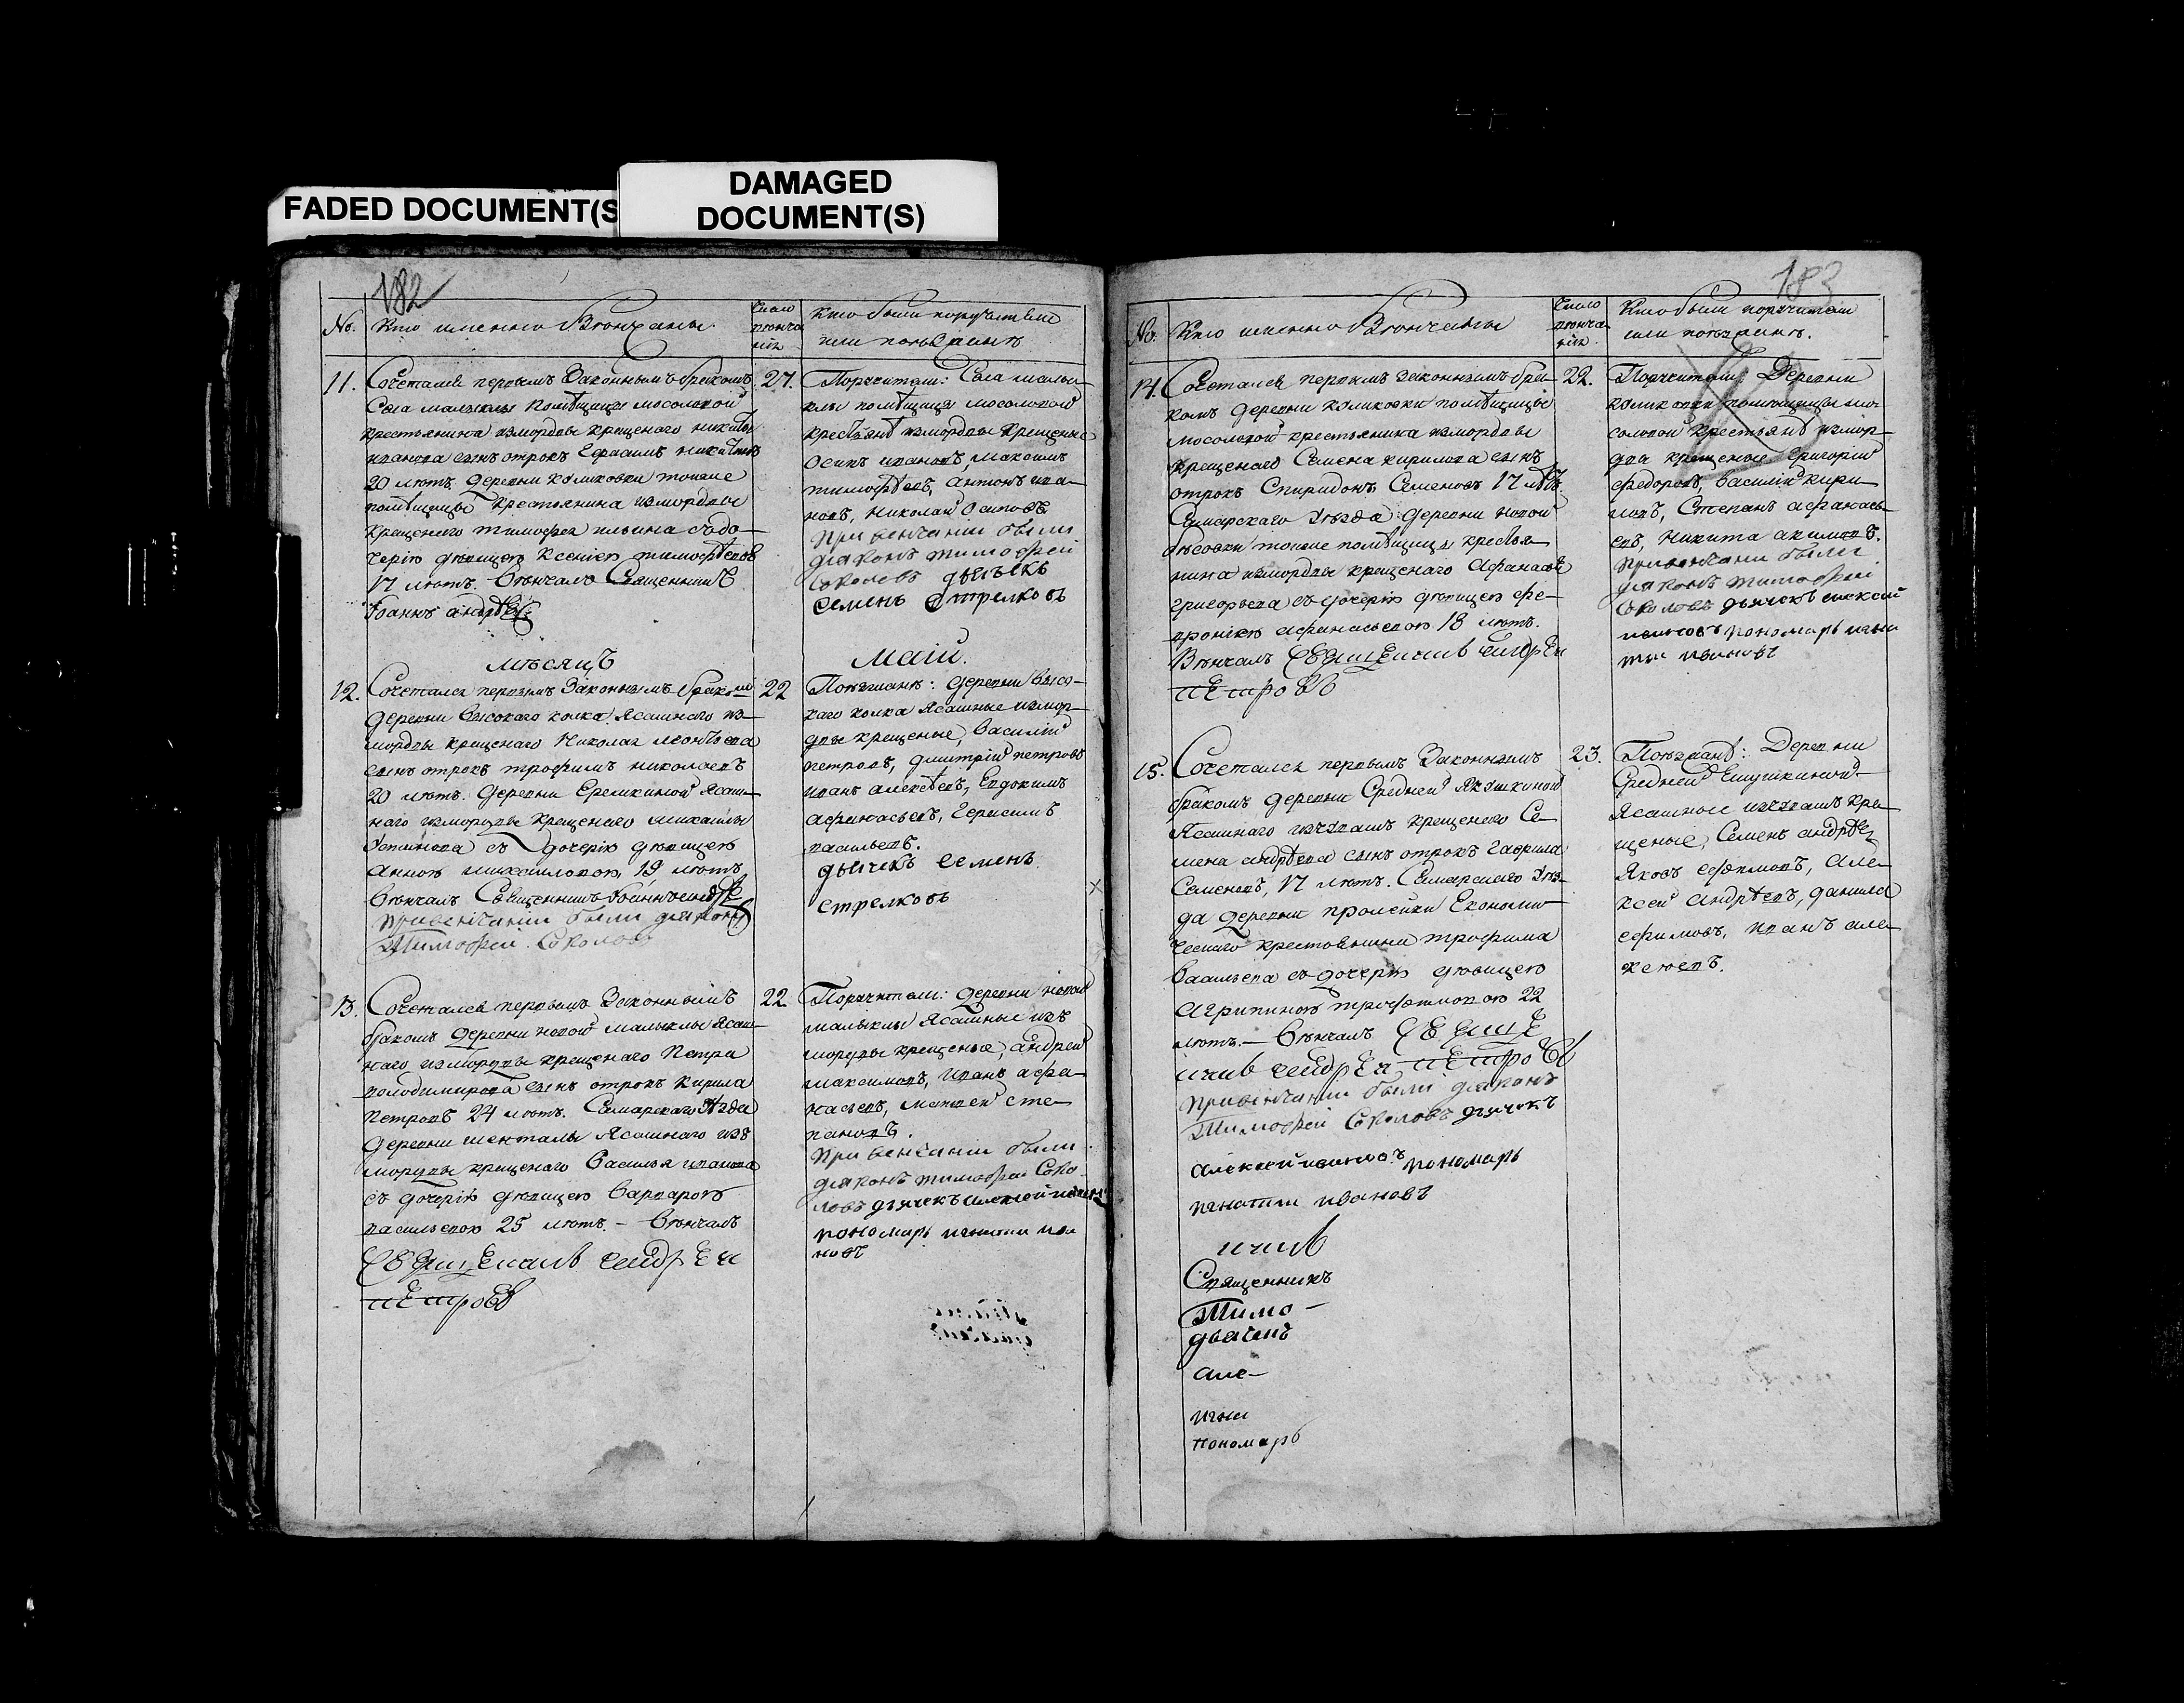 FADED DOCUMENT(S
DAMAGED
DOCUMENT(S)
182
No.
Кто именно Венчаны
Число
венча
нія
Кто были поручители
или поезжанѣ
11.
Сочетался первымъ Законнымъ бракомъ
Села малыклы Помѣщицы мосоловой
крестьянина измордвы крещенаго никиты
иванова сынъ отрокъ Герасимъ никитинъ
20 лѣтъ. деревни куликовки тоиже
помѣщицы крестьянина измордвы
крещенаго тимофея ильина съдо-
черію дѣвицею Ксеніею тимофѣевою
17 лѣтъ. Вѣнчалъ Священникъ
Іоаннъ андрѣевъ
27.
Поручители: Села малы-
клы помѣщицы мосоловой
крестьянѣ измордвы крещеные
Осипъ ивановъ, максимъ
тимофѣевъ, антонъ ива-
новъ, николай Осиповъ
при венчаніи были
диаконъ тимофей
Соколовъ дьячекъ
семенъ стрелковъ
мѣсяцъ
маій.
12.
Сочетался первымъ Законнымъ бракомъ
деревни высокаго колка Ясашнаго из-
мордвы крещенаго Николая леонтьева
сынъ отрокъ трофимъ николаевъ
20 лѣтъ. деревни Еремкиной Ясаш-
наго измордвы крещенаго михаилы
Устинова съ дочерію дѣвицею
анною михаиловою, 19 лѣтъ
Вѣнчалъ Священникъ Іоаннъ андрѣевъ
при венчаніи были диаконъ
Тимофей Соколовъ
22
Поезжанѣ: деревни высо-
каго колка Ясашные измор-
двы крещеные, Василій
петровъ, дмитрій петровъ
иванъ алексѣевъ, Евдокимъ
афанасьевъ, Герасимъ
васильевъ.
дьячекъ семенъ
стрелковъ
13.
Сочетался первымъ Законнымъ
бракомъ деревни новой малыклы Ясаш-
наго измордвы крещенаго Петра
володимирова сынъ отрокъ кирила
петровъ 24 лѣтъ. Самарскаго Уѣзда
деревни шенталы Ясашнаго изъ
мордвы крещенаго Василья иванова
съ дочерію дѣвицею Варварою
васильевою 25 лѣтъ. - Вѣнчалъ
Священникъ андрей
петровъ
22
Поручители: деревни новой
малыклы Ясашные изъ
мордвы крещеные, андрей
максимовъ, иванъ афа-
насьевъ, матвей сте-
пановъ.
при венчаніи были
диаконъ тимофеи Соко-
ловъ дьячекъ алексей
пономарь игнатии ива
новъ
183
No.
Кто именно Венчаны
Число
венча
нія
Кто были поручители
или поезжанѣ.
14.
Сочетался первымъ законнымъ бра-
комъ деревни куликовки помѣщицы
мосоловой крестьянина измордвы
крещенаго Семена кирилова сынъ
отрокъ Спиридонъ Семеновъ 17 лѣтъ.
Самарскаго Уѣзда деревни новой
бѣсовки тоиже помѣщицы крестья-
нина измордвы крещенаго Афанасья
григорьева съ дочерію дѣвицею фе-
вроніею афанасьевою. 18 лѣтъ.
Вѣнчалъ Священникъ андрей
петровъ
22.
Поручители: Деревни
куликовки помѣщицы мо
соловой крестьянѣ измор-
двы крещеные Григорій
федоровъ, василій кири
ловъ, Степанъ афанась-
евъ, никита акимовъ.
при венчани были
диаконъ тимофеи
Соколовъ дьячекъ алексей
пономарь игна
тии ивановъ
15.
Сочетался первымъ Законнымъ
бракомъ деревни Средней Якушкиной
Ясашнаго изчувашъ крещенаго Се-
мена андрѣева сынъ отрокъ Гаврила
Семеновъ, 17 лѣтъ. Самарскаго Уѣз-
да деревни пролейки Економи-
ческаго крестьянина трофима
Васильева съ дочерію дѣвицею
агрипиною трофимовою 22
лѣтъ. - Вѣнчалъ Свяще
никъ андрей петровъ
при венчаніи были диаконъ
Тимофеи Соколовъ дьячекъ
алексей пономарь
игнатии ивановъ
23.
Поезжанѣ: Деревни
Средней Якушкиной
Ясашные изчувашъ кре-
щеные, Семенъ андрѣевъ
Яковъ ефимовъ, але-
ксей андрѣевъ, данила
ефимовъ, иванъ але-
ксеевъ.
Священникъ
Тимо-
дьячекъ
але-
игна
пономарь